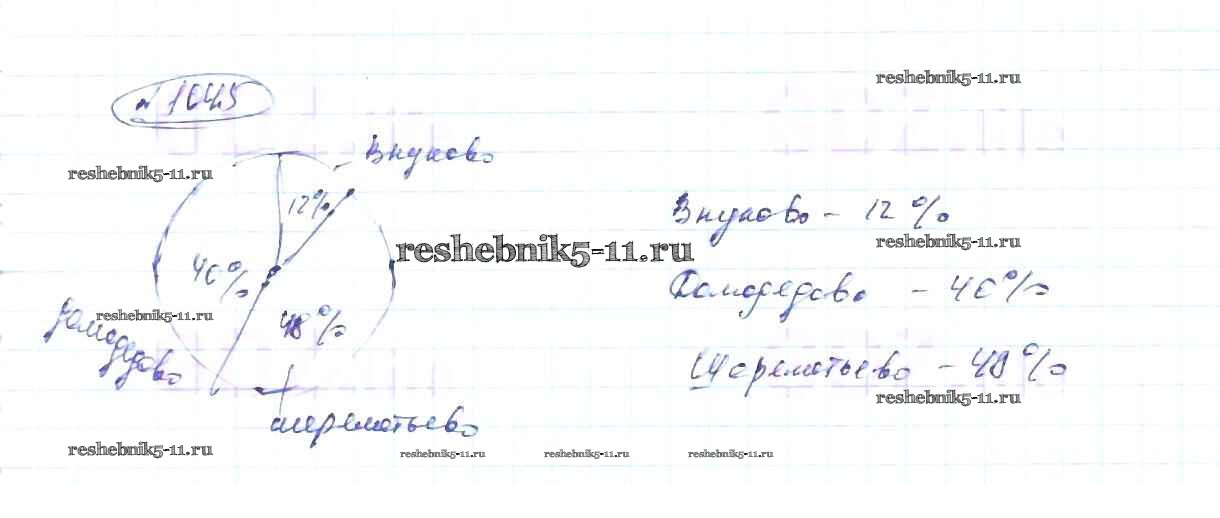 reshebnik5-11.ru
№ 1045
Внуково
reshebnik5-11.ru
12%
Внуково - 12%
reshebnik5-11.ru
reshebnik5-11.ru
40%
Домодедово - 40%
reshebnik5-11.ru
48%
Домодедово
Шереметьево - 48%
reshebnik5-11.ru
шереметьево
reshebnik5-11.ru
reshebnik5-11.ru
reshebnik5-11.ru
reshebnik5-11.ru